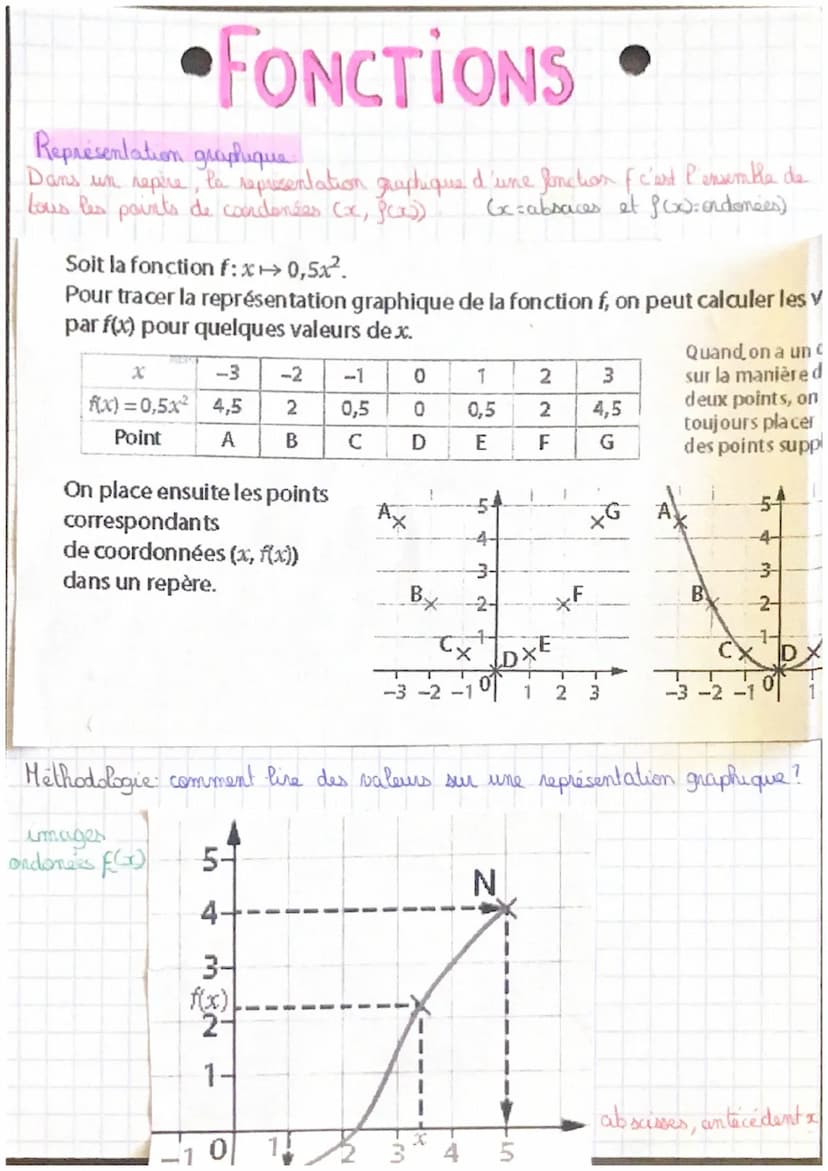 • FONCTIONS •
Représentation graphique:
Dans un repère, la représentation graphique d'une fonction f c'est l'ensemble de
tous les points de coordonées (x, f(x)) (x = absices et f(x) = ordonées)
Soit la fonction f: x ↦ 0,5x².
Pour tracer la représentation graphique de la fonction f, on peut calculer les v
par f(x) pour quelques valeurs de x.
x -3 -2 -1 0 1 2 3
f(x) = 0,5x² 4,5 2 0,5 0 0,5 2 4,5
Point A B C D E F G
Quand on a un d
sur la manière d
deux points, on
toujours placer
des points suppl
On place ensuite les points
correspondants
de coordonnées (x, f(x))
dans un repère.
A 5 G
4
3
B 2 F
C 1 D E
-3 -2 -1 0 1 2 3
A 5
4
3
B 2
C 1 D
-3 -2 -1 0 1
Méthodologie: comment lire des valeurs sur une représentation graphique?
images
ordonées f(x)
5
N
4
3
f(x)
2
1
abscisses, antécédent x
-1 0 1 2 3 x 4 5